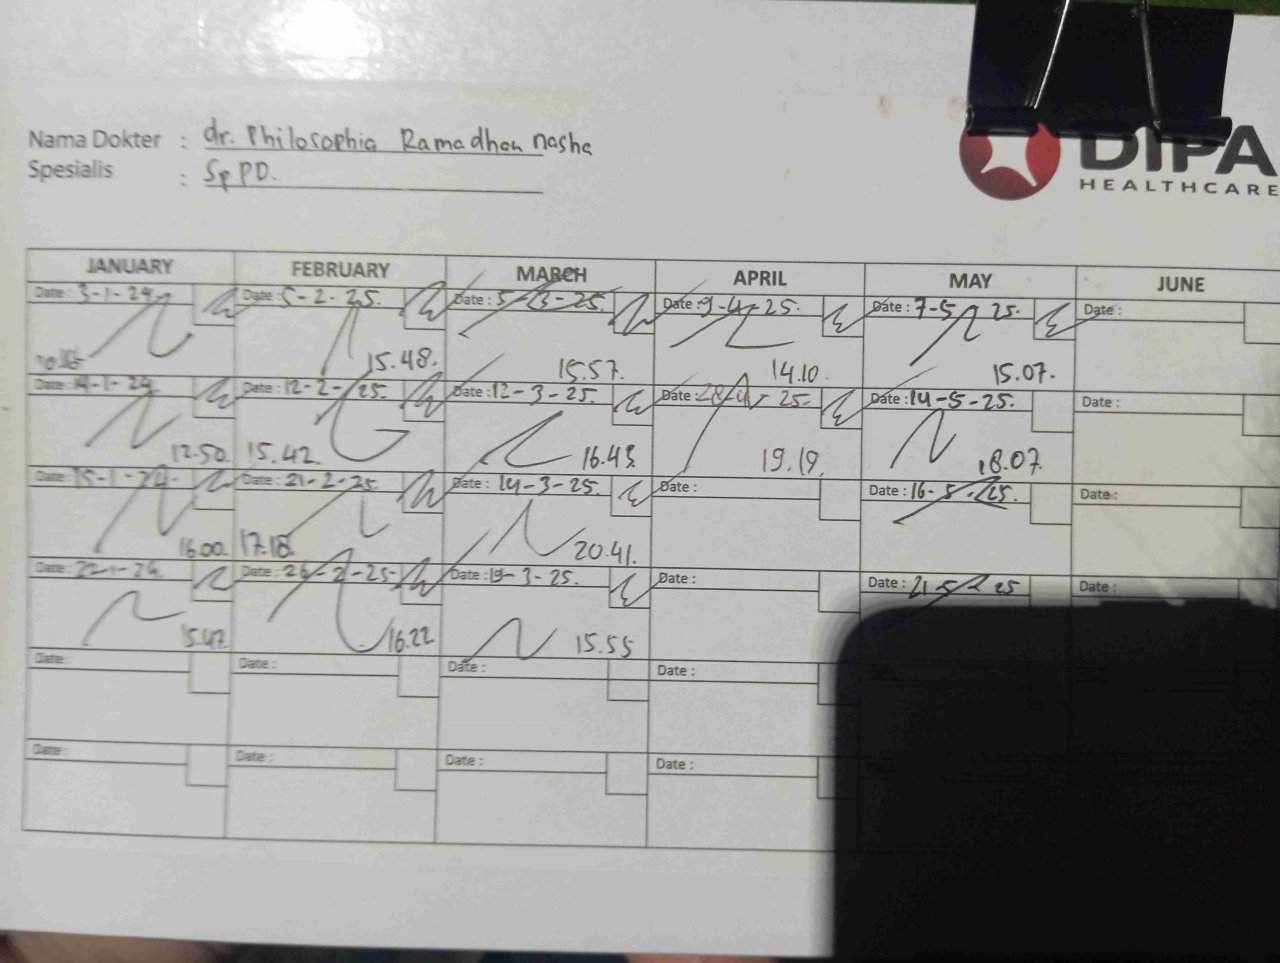 Nama Dokter : dr. Philosophia Ramadhan nasha
Spesialis : SpPD.
DIPA
HEALTHCARE
JANUARY FEBRUARY MARCH APRIL MAY JUNE
Date : 3-1-24 Date : 5-2-25. Date : 5-3-25. Date : 9-4-25. Date : 7-5-25. Date :
15.48. 15.57. 14.10. 15.07.
Date : 14-1-24 Date : 12-2-25. Date : 12-3-25. Date : 28-4-25. Date : 14-5-25. Date :
12.50. 15.42. 16.43. 19.19. 18.07.
Date : 15-1-24. Date : 21-2-25 Date : 14-3-25. Date : Date : 16-5-25. Date :
16.00. 17.18. 20.41.
Date : 22-1-24. Date : 26-2-25- Date : 19-3-25. Date : Date : 21-5-25 Date :
15.47. 16.22 15.55
Date : Date : Date : Date :
Date : Date : Date : Date :